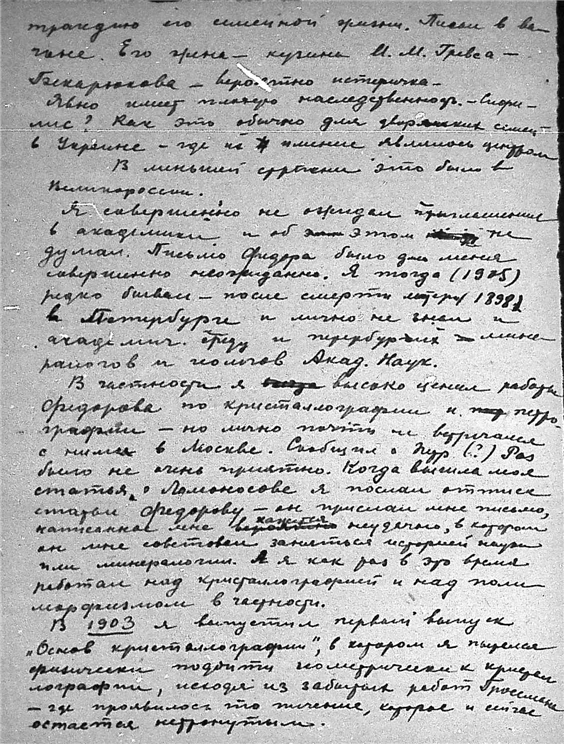 трагедию его семейной жизни. Писал в ва-
гоне. Его жена – кузина И. М. Гревса –
– вероятно истеричка –
Явно имет плохую наследственность. – Сифи-
лис? Как это обычно для дворянских семей
в Украине – где их имение являлось центром
В меньшей степени это было в
Великороссии.
Я совершенно не ожидал приглашения
в академики и об этом не
думал. Письмо Федора было для меня
совершенно неожиданно. Я тогда (1905)
редко бывал – после смерти матери 1898 г
в Петербурге и лично не знал и
академич. среду и петербургских мине-
ралогов и геологов Акад. Наук.
В частности я высоко ценил работы
Федорова по кристаллографии и петро-
графии – но лично почти не встречался
с ними в Москве. Сообщил о (?) Раз
было не очень приятно. Когда вышла моя
статья о Ломоносове я послал оттиск
статьи Федорову – он прислал мне письмо,
написанное мне кажется неудачно, в котором
он мне советовал заняться историей науки
или минералогии. А я как раз в это время
работал над кристаллографией и над поли
морфизмом в частности.
В 1903 я выпустил первый выпуск
„Основ кристаллографии", в котором я пытался
физически подойти геометрически к кристал
лографии, исходя из забытых работ Грассмана
– где проявилось то течение, которое и сейчас
остается нетронутым.